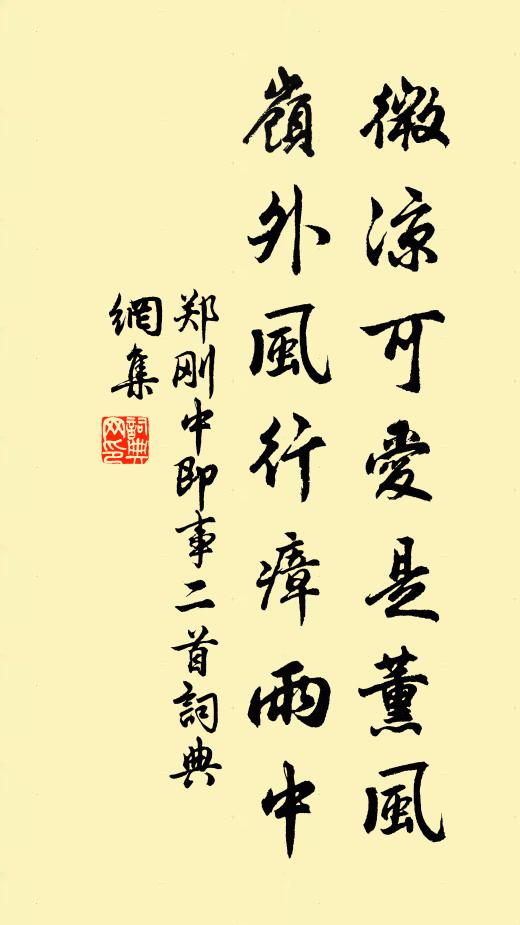 微涼可愛是薰風
嶺外風行瘴雨中
郑刚中即事二首詞典
網集
詞典网印